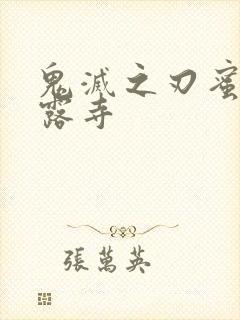 鬼滅之刃蜜
露寺
張萬英